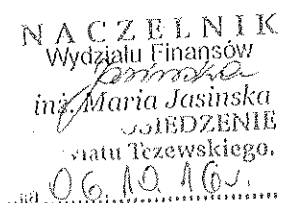 NACZELNIK
Wydziału Finansów
Jasinska
inż. Maria Jasinska
IEDZENIE
wiatu Tczewskiego.
06.10.16r.